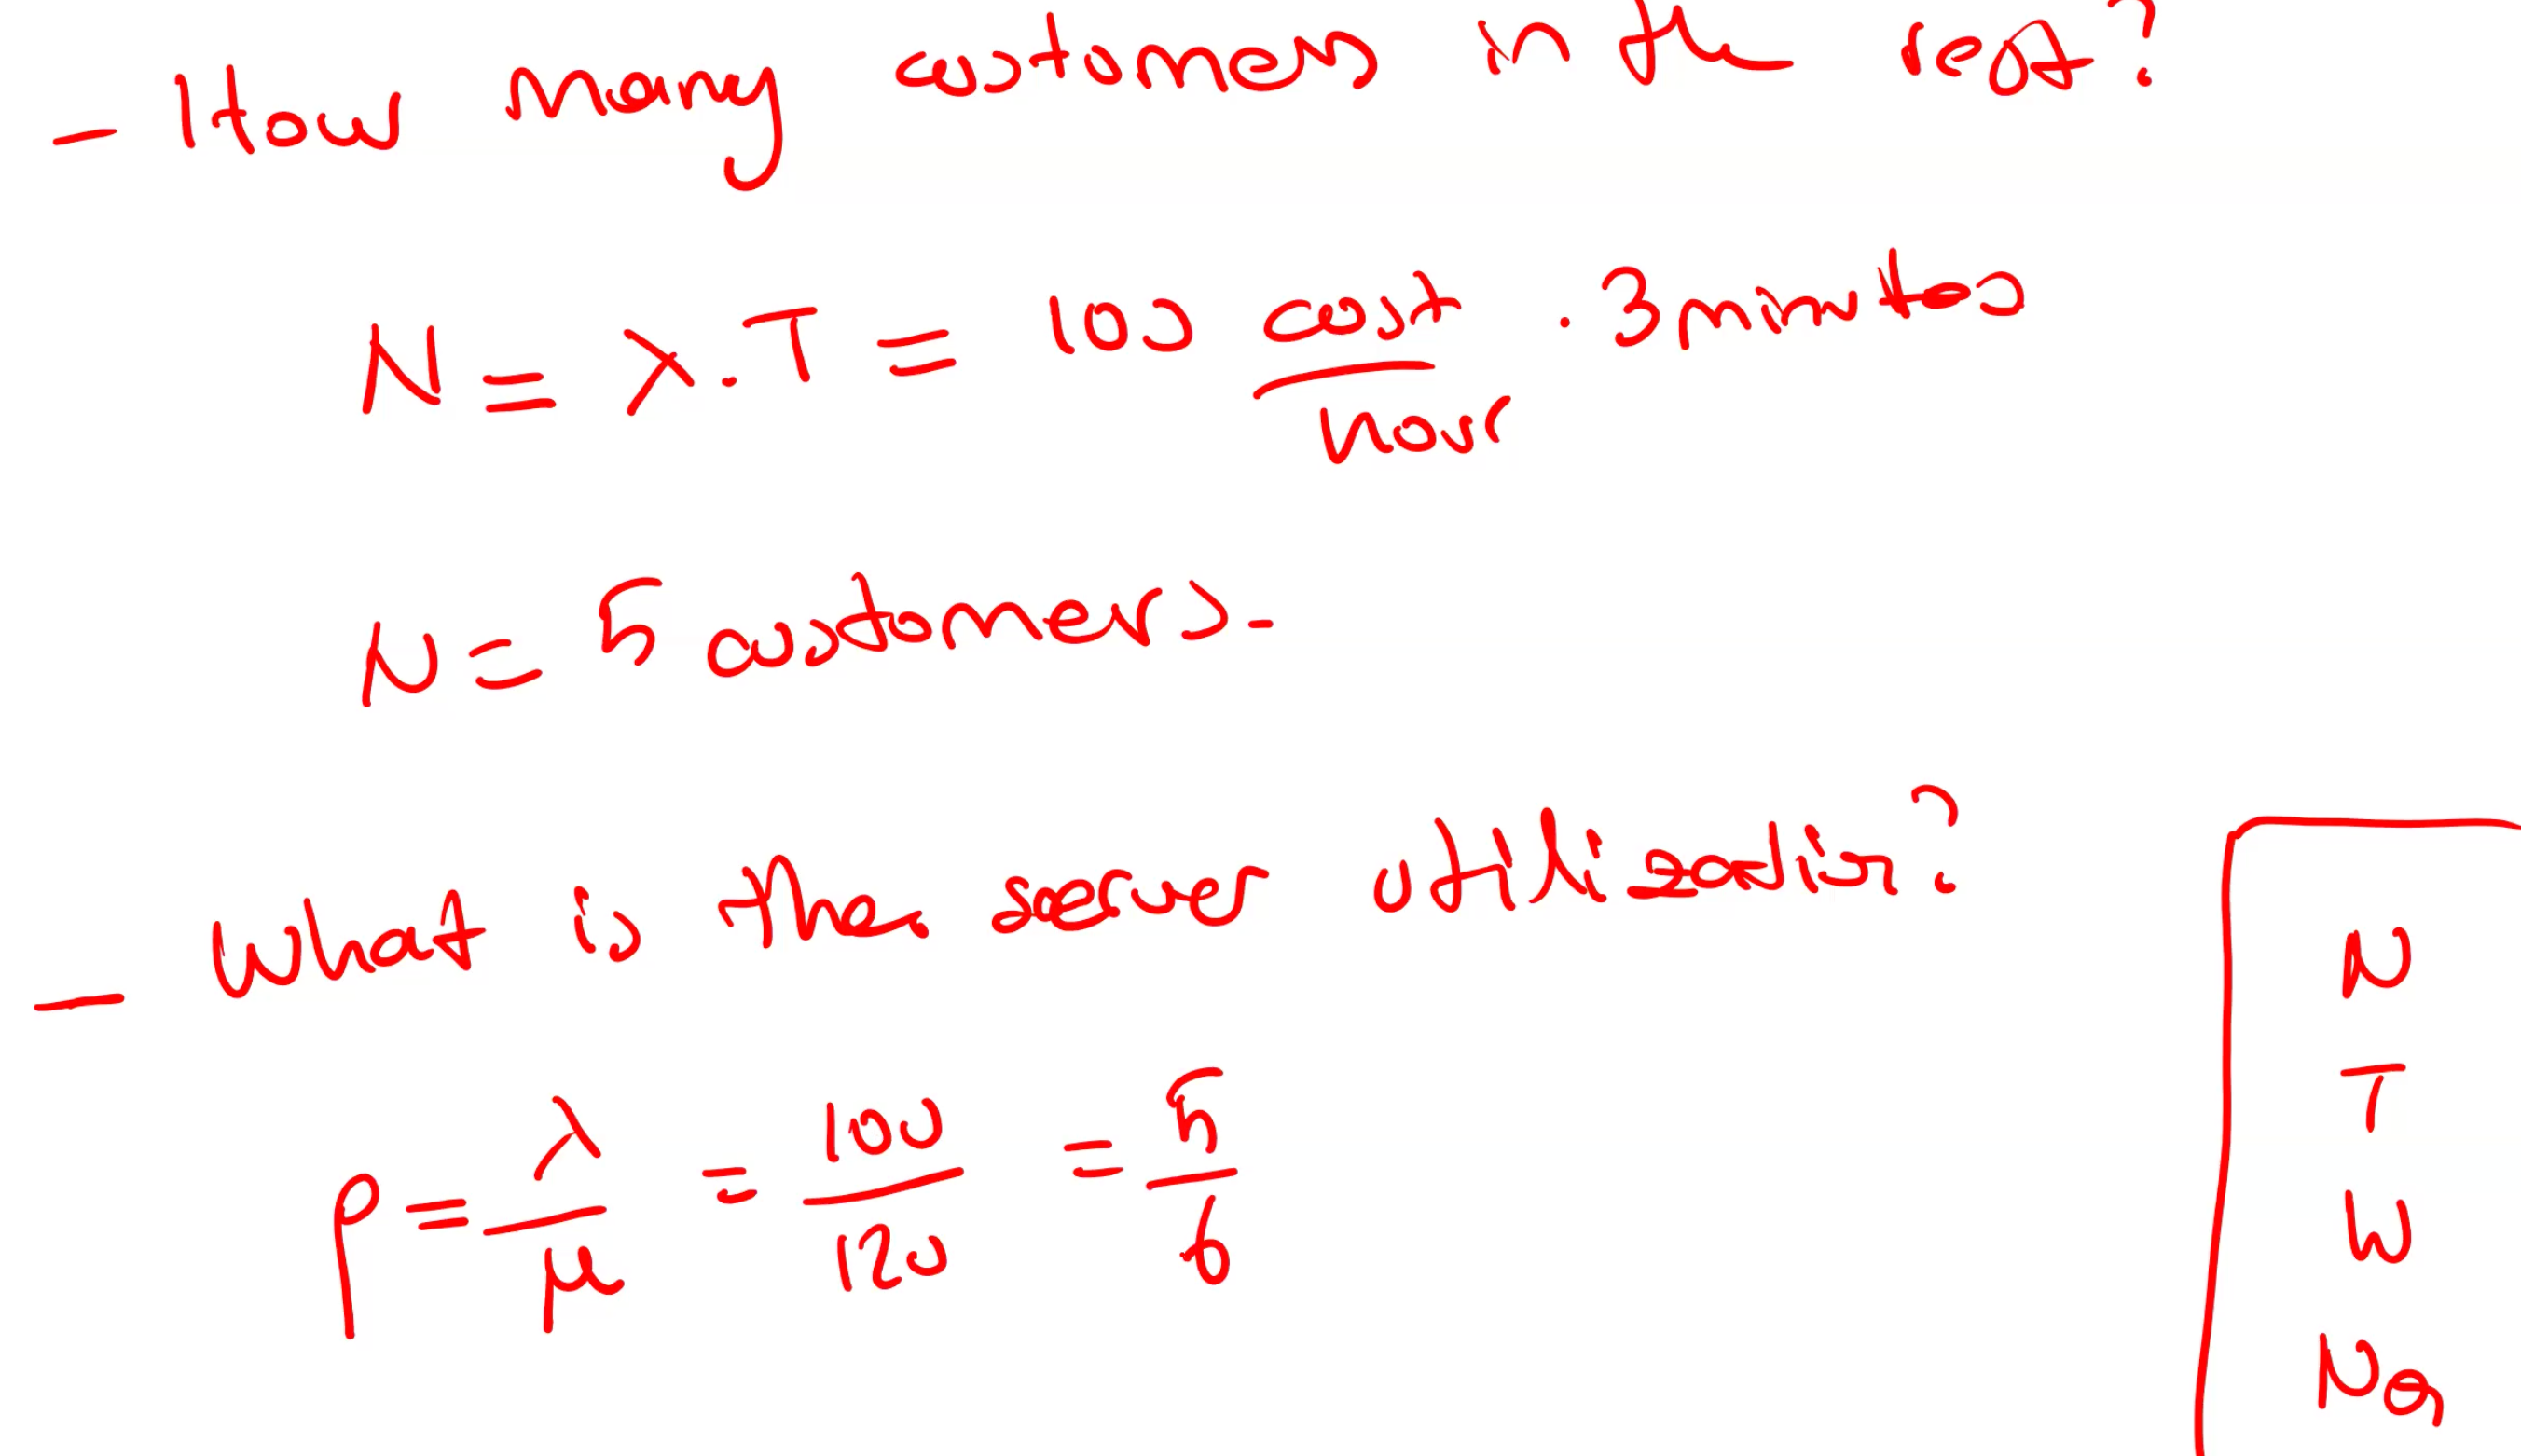 - How many customers in the rest?
N = λ.T = 100 cust/hour . 3 minutes
N = 5 customers.
- What is the server utilization?
ρ = λ/μ = 100/120 = 5/6
N
T
W
NQ